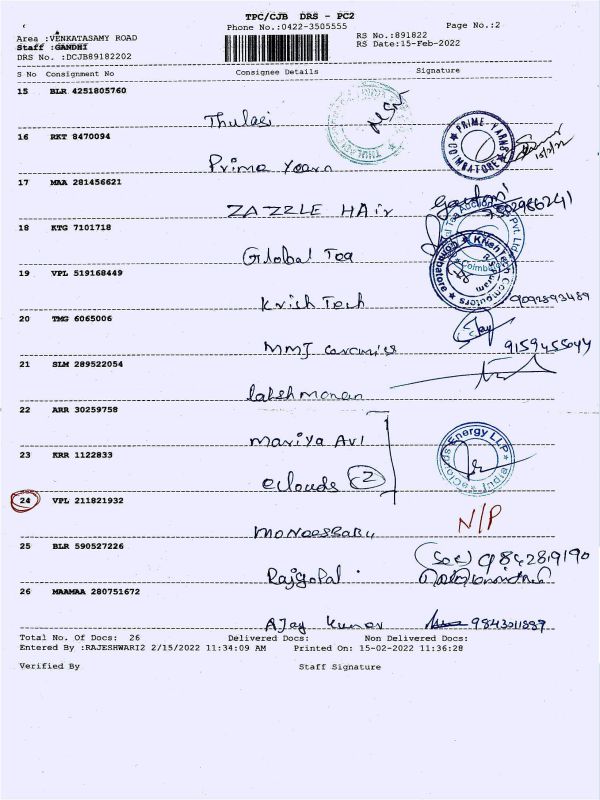 TPC/CJB DRS - PC2
Phone No.:0422-3505555 Page No.:2
Area :VENKATASAMY ROAD RS No.:891822
Staff :GANDHI RS Date:15-Feb-2022
DRS No. :DCJB89182202
S No Consignment No Consignee Details Signature
15 BLR 4251805760
Thulasi
16 RKT 8470094
PRIME YARNS COIMBATORE
Prime Yearn
17 MAA 281456621
ZAZZLE HAir
18 KTG 7101718
Global Tea
19 VPL 519168449
Krish Tech 9092893489
20 TMG 6065006
MMJ 9159455044
21 SLM 289522054
Lakshmanan
22 ARR 30259758
Mariya Avl
23 KRR 1122833
Energy LLP
eclouds 2
24 VPL 211821932
N/P
25 BLR 590527226
9842819190
Rajgopal
26 MAAMAA 280751672
AJay Kumar 9843011889
Total No. Of Docs: 26 Delivered Docs: Non Delivered Docs:
Entered By :RAJESHWARI2 2/15/2022 11:34:09 AM Printed On: 15-02-2022 11:36:28
Verified By Staff Signature